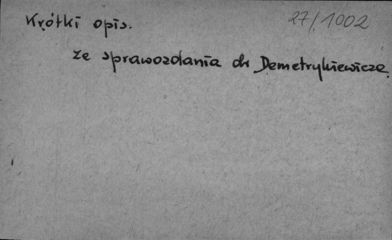 Krótki opis. 27/1002
ze sprawozdania dr Demetrykiewicza